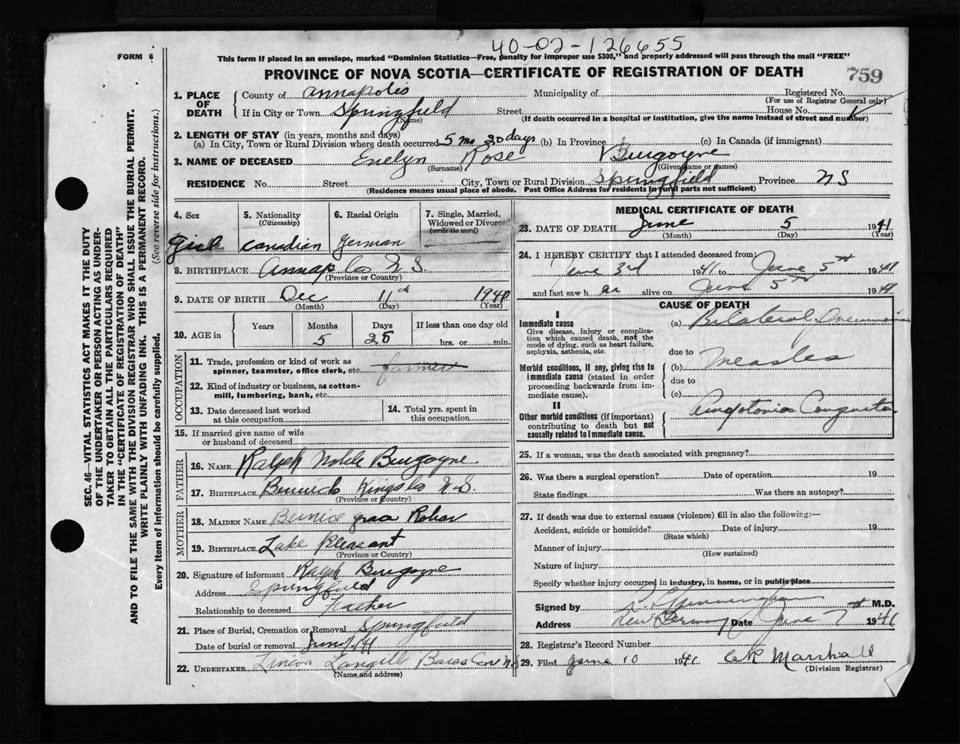 40-02-126655
FORM 6
This form if to be placed in an envelope, marked "Dominion Statistics—Free, penalty for improper use $300," and properly addressed will pass through the mail "FREE"
PROVINCE OF NOVA SCOTIA—CERTIFICATE OF REGISTRATION OF DEATH
759
1. PLACE OF DEATH
County of Annapolis Municipality of Registered No.
(For use of Registrar General only)
If in City or Town Springfield Street House No.
(Name) (If death occurred in a hospital or institution, give the name instead of street and number)
2. LENGTH OF STAY (in years, months and days)
(a) In City, Town or Rural Division where death occurred 5 mo 30 days (b) In Province (c) In Canada (if immigrant)
3. NAME OF DECEASED Evelyn Rose Burgoyne
(Surname) (Given name or names)
RESIDENCE No. Street City, Town or Rural Division Springfield Province N S
(Residence means usual place of abode. Post Office Address for residents in rural parts not sufficient)
SEC. 46—VITAL STATISTICS ACT MAKES IT THE DUTY
OF THE UNDERTAKER OR PERSON ACTING AS UNDER-
TAKER TO OBTAIN ALL THE PARTICULARS REQUIRED
IN THE "CERTIFICATE OF REGISTRATION OF DEATH"
AND TO FILE THE SAME WITH THE DIVISION REGISTRAR WHO SHALL ISSUE THE BURIAL PERMIT.
WRITE PLAINLY WITH UNFADING INK. THIS IS A PERMANENT RECORD.
Every item of information should be carefully supplied.
(See reverse side for instructions.)
4. Sex
5. Nationality
(Citizenship)
6. Racial Origin
7. Single, Married, Widowed or Divorced
(write the word)
Canadian German
8. BIRTHPLACE Annap Co N.S.
(Province or Country)
9. DATE OF BIRTH Dec 11th 1940
(Month) (Day) (Year)
10. AGE in Years Months Days If less than one day old
5 25 hrs. or min.
OCCUPATION
11. Trade, profession or kind of work as spinner, teamster, office clerk, etc. farmer
12. Kind of industry or business, as cotton-mill, lumbering, bank, etc.
13. Date deceased last worked at this occupation
14. Total yrs. spent in this occupation
15. If married give name of wife or husband of deceased
FATHER
16. NAME Ralph Noble Burgoyne
17. BIRTHPLACE Kings Co N S
(Province or Country)
MOTHER
18. MAIDEN NAME Bernice
19. BIRTHPLACE Lake Pleasant
(Province or Country)
20. Signature of informant Ralph Burgoyne
Address Springfield
Relationship to deceased Father
21. Place of Burial, Cremation or Removal Springfield
Date of burial or removal June 7/41
22. UNDERTAKER Langill
(Name and address)
MEDICAL CERTIFICATE OF DEATH
23. DATE OF DEATH June 5 1941
(Month) (Day) (Year)
24. I HEREBY CERTIFY that I attended deceased from:
June 3rd 1941 to June 5th 1941
and last saw her alive on June 5th 1941
CAUSE OF DEATH
I
Immediate cause
Give disease, injury or complication which caused death, not the mode of dying, such as heart failure, asphyxia, asthenia, etc.
(a) Bilateral Pneumonia
due to
Morbid conditions, if any, giving rise to immediate cause (stated in order proceeding backwards from immediate cause).
(b) Measles
due to
(c)
II
Other morbid conditions (if important) contributing to death but not causally related to immediate cause.
Amyotonia Congenita
25. If a woman, was the death associated with pregnancy?
26. Was there a surgical operation? Date of operation 19
State findings Was there an autopsy?
27. If death was due to external causes (violence) fill in also the following:—
Accident, suicide or homicide? Date of injury 19
(State which)
Manner of injury
(How sustained)
Nature of injury
Specify whether injury occurred in industry, in home, or in public place
Signed by M.D.
Address New Germany Date June 7th 1941
28. Registrar's Record Number
29. Filed June 10 1941 Marshall
(Division Registrar)